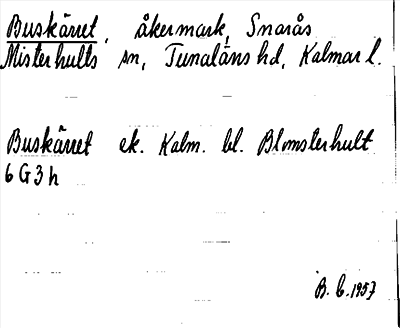 Buskärret, åkermark, Snarås
Misterhults sn, Tunaläns hd, Kalmar l.
Buskärret ek. Kalm. bl. Blomsterhult
6 G 3 h
B. C. 1957